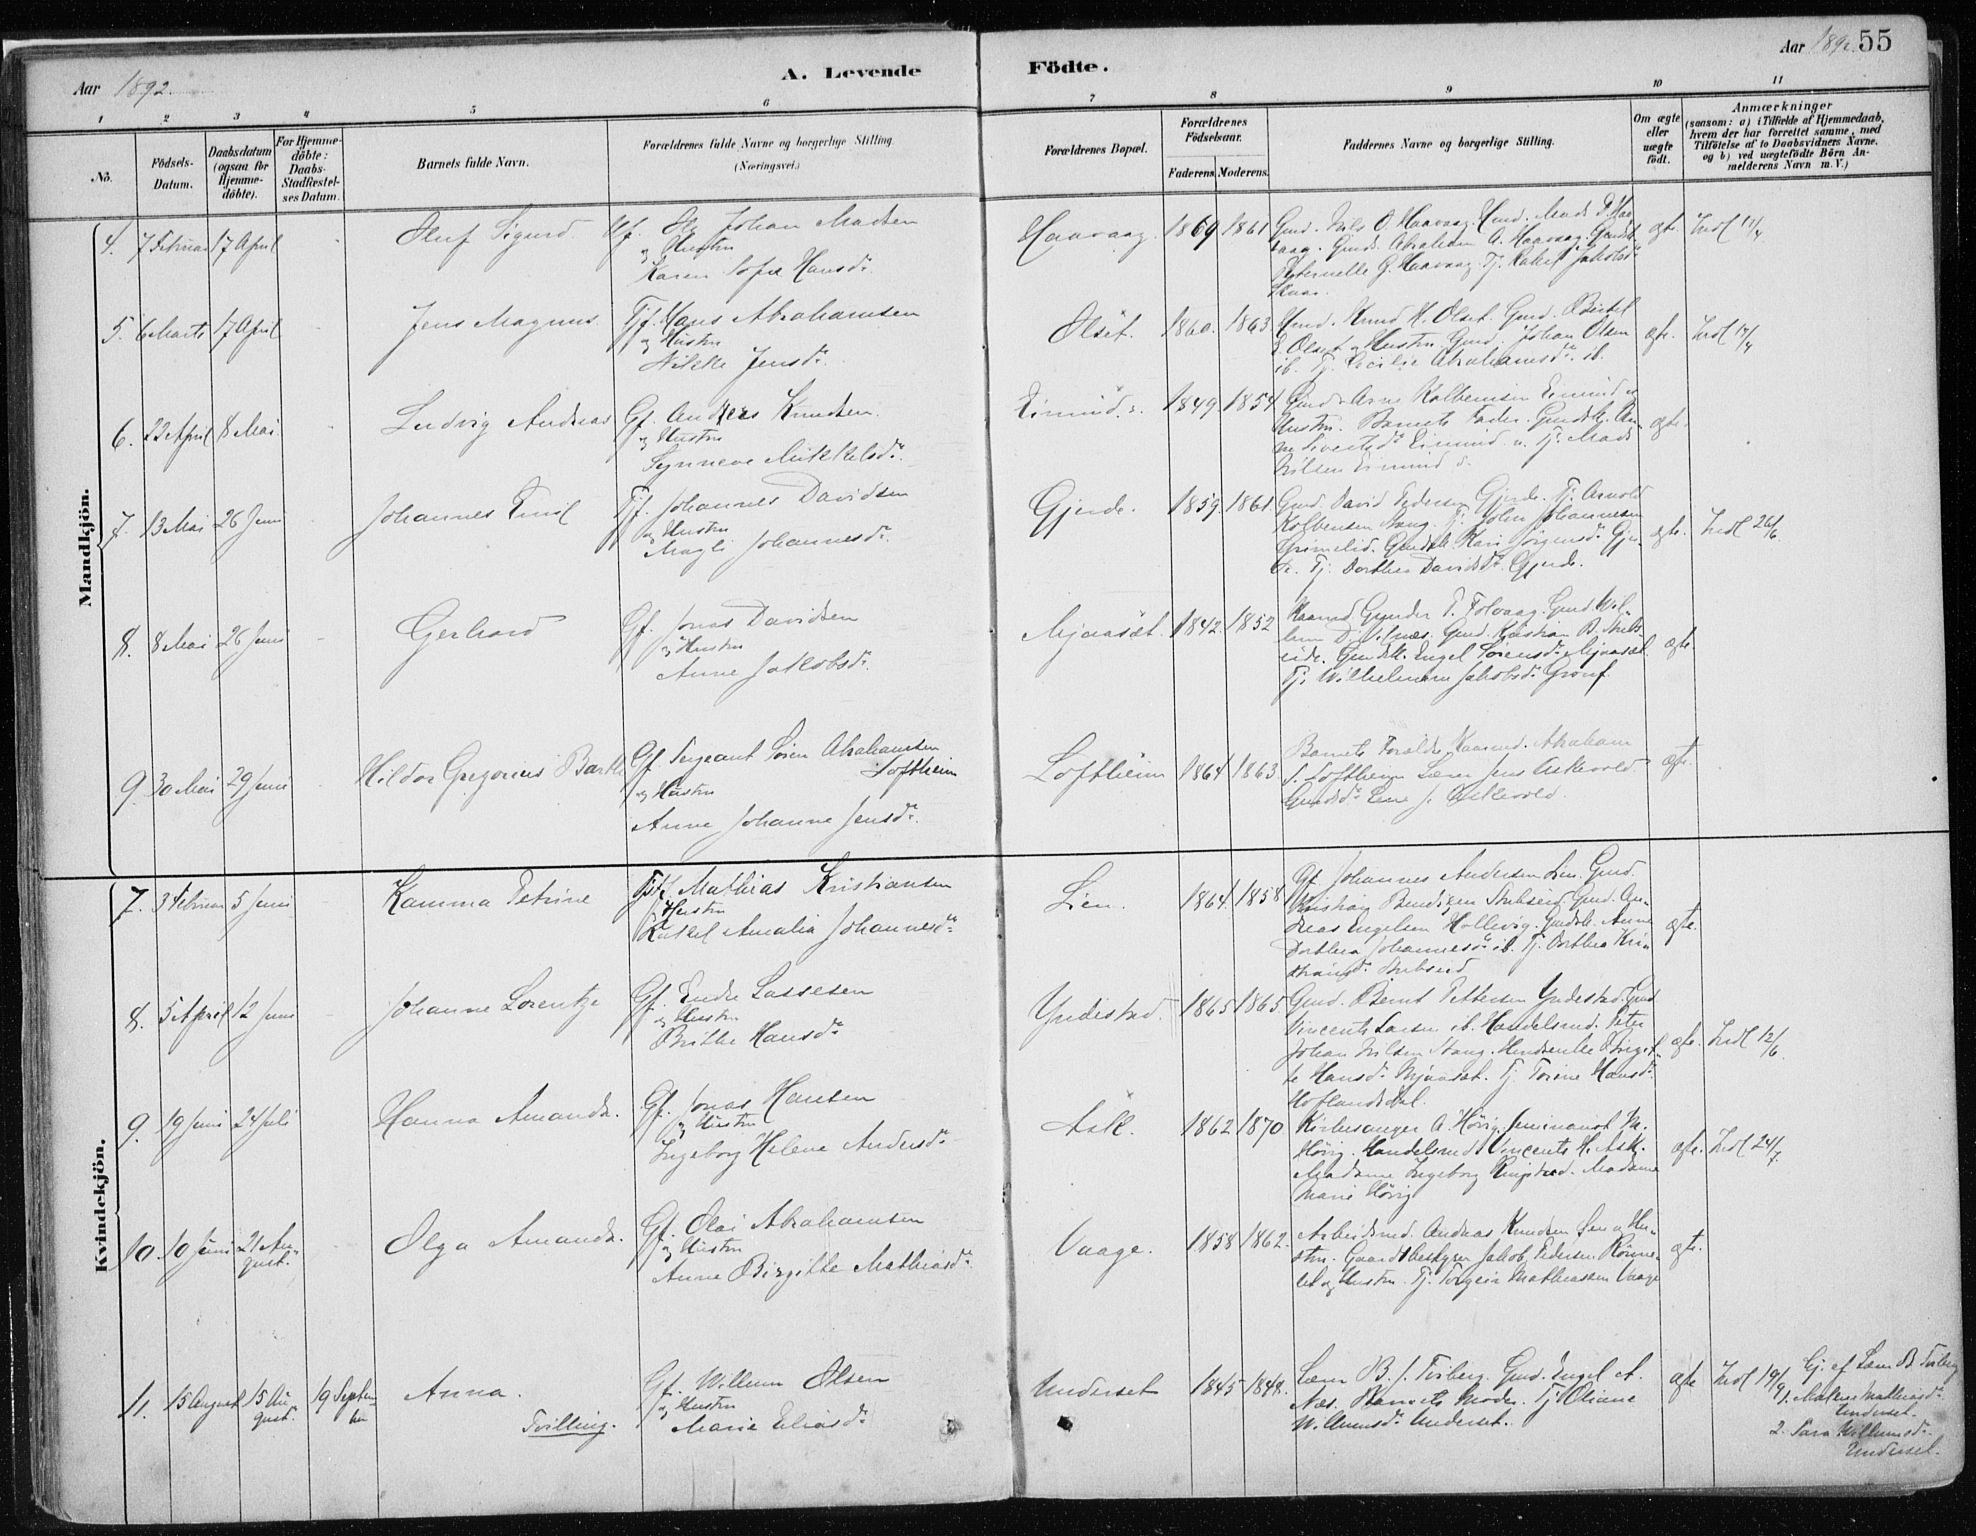 Aar 1892.
A. Levende
Födte.
Aar 1892. 55
1 2 3 4 5 6 7 8 9 10 11
No.
Födsels-
Datum.
Daabsdatum
(ogsaa for
Hjemme-
döbte).
For Hjemme-
döbte:
Daabs-
Stadfæstel-
ses Datum.
Barnets fulde Navn.
Forældrenes fulde Navne og borgerlige Stilling.
(Næringsvei.)
Forældrenes Bopæl.
Forældrenes
Födselsaar.
Faderens. Moderens.
Faddernes Navne og borgerlige Stilling.
Om ægte
eller
uægte
födt.
Anmærkninger
(saasom: a) i Tilfælde af Hjemmedaab,
hvem der har forrettet samme, med
Tilföielse af to Daabsvidners Navne,
og b) ved uægtefödte Börn An-
melderens Navn m. V.)
Mandkjön.
4. 7 Februar 17 April
Oluf Sigurd
Johan Madsen
og Hustru
Karen Sofie Hansdr.
Haavaag. 1869 1861
Gmd. Nils O. Haavaag. Gmd. Mads P. Haa-
vaag. Gmds. Abraham A. Haavaag. Gmdsk.
Peternelle G. Haavaag. Tj. Rakel Jakobsdr.
Skaar.
ægte. Indl 17/4
5. 6 Marts 17 April
Jens Magnus.
Tjf. Hans Abrahamsen
og Hustru
Nikke Jensdr.
Olset. 1860. 1863.
Gmd. Knud H. Olset. Gmd. Bertel
E. Olset og Hustru. Gmd. Johan Olsen
ib. Tj. Cecilie Abrahamsdr. ib.
ægte. Indl 17/4
6. 22 April 8 Mai
Ludvig Andreas
Gf. Anders Knudsen.
og Hustru
Synneve Mikkelsdr.
Eimind. 1849. 1854
Gmd. Arne Kolbensen Eimind og
Hustru. Barnets Fader. Gmdsk. An-
ne Sivertsdr. Eimind. Tj. Mads
Nilsen Eimind
ægte.
7. 13 Mai 26 Juni
Johannes Emil
Tjf. Johannes Davidsen
og Hustru
Magli Johannesdr.
Gjerde. 1859. 1861.
Gmd. David Pedersen Gjerde. Tj. Arnold
Kolbensen Stang. Tj. John Johannesen
Grimelid. Gmdsk. Kari Jörgensdr. Gjer-
de. Tj. Dorthea Davidsdr. Gjerde.
ægte. Indl 26/6.
8. 8 Mai 26 Juni
Gerhard
Gf. Jonas Davidsen
og Hustru
Anne Jakobsdr.
Mjaasæt. 1842. 1852
Kaarmd. Gunder T. Folvaag. Gmd. Wil-
lum D. Vifnæs. Gmd. Kristian B. Strids-
eide. Gmdsk. Engel Sörensdr. Mjaasæt.
Tj. Wilhelmine Jakobsdr. Grönf.
ægte.
9. 30 Mai 29 Juni
Hildor Gregorius Barth
Gf. Sergeant Sören Abrahamsen
Loftheim
og Hustru
Anne Johanne Jensdr.
Loftheim 1864 1863
Barnets Forældre. Kaarmd. Abraham
S. Loftheim. Lærer Jens Askevold
Gmdsdr. Lene J. Askevold.
ægte.
Kvindekjön.
7. 3 Februar 5 Juni
Kamma Petrine
Mathias Kristiansen
og Hustru
Rakel Amalia Johannesdr.
Lien. 1864. 1858
Gf. Johannes Andersen Lien. Gmd.
Kristian Bendixen Stridseid. Gmd. An-
dreas Engelsen Hollevig. Gmdsk. Anne
Dorthea Johannesdr. ib. Tj. Dorthea Kri-
stiansdr. Stridseid
ægte.
8. 5 April 12 Juni
Johanne Lorentze
Gf. Endre Lassesen
og Hustru
Brithe Hansdr.
Yndestad. 1865 1865
Gmd. Bernt Pettersen Yndestad. Gmd
Vincents Larsen ib. Handelsmd. Peter
Johan Nilsen Stang. Huusenke Birgit-
te Hansdr. Mjaasæt. Tj. Torine Hansdr.
Hoflandsdal.
ægte. Indl 12/6.
9. 19 Juni 24 Juli
Hanna Amanda.
Gf. Jonas Hansen
og Hustru
Ingeborg Helene Andersdr.
Ask. 1862 1870
Kirkesanger A. Hövig. Seminarist M.
Hövig. Handelsmd. Vincents H. Ask.
Madame Ingeborg Ringstad. Madame
Marie Hövig
ægte. Indl 24/7.
10. 10 Juni 21 Au-
gust.
Olga Amanda.
Gf. Olai Abrahamsen
og Hustru
Anne Birgitte Mathiasdr.
Vaage. 1858 1862.
Arbeidsmd. Andreas Knudsen Lien og Hu-
stru. Gaardsbestyrer Jakob Pedersen Rönne-
set og Hustru. Tj. Torgeir Mathiassen Vaage
ægte.
11. 15 August 15 Au-
gust. 19 Septem-
ber
Anna.
Tvilling.
Gf. Willum Olsen
og Hustru
Marie Eliasdr.
Underset 1845 1849.
Lærer B. J. Tviberg. Gmd. Engel A.
Næs. Barnets Moder. Tj. Oliane
Willumsdr. Underset.
ægte Indl 19/9
Hj. af Lærer B. Tviberg
1. Mathiasdr.
Underset.
2. Sara Willumsdr.
Underset.